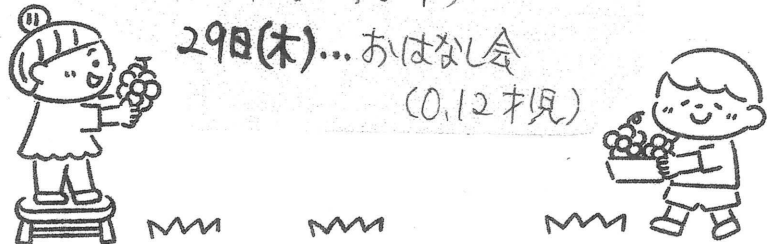 29日(木)…おはなし会
(0,12才児)